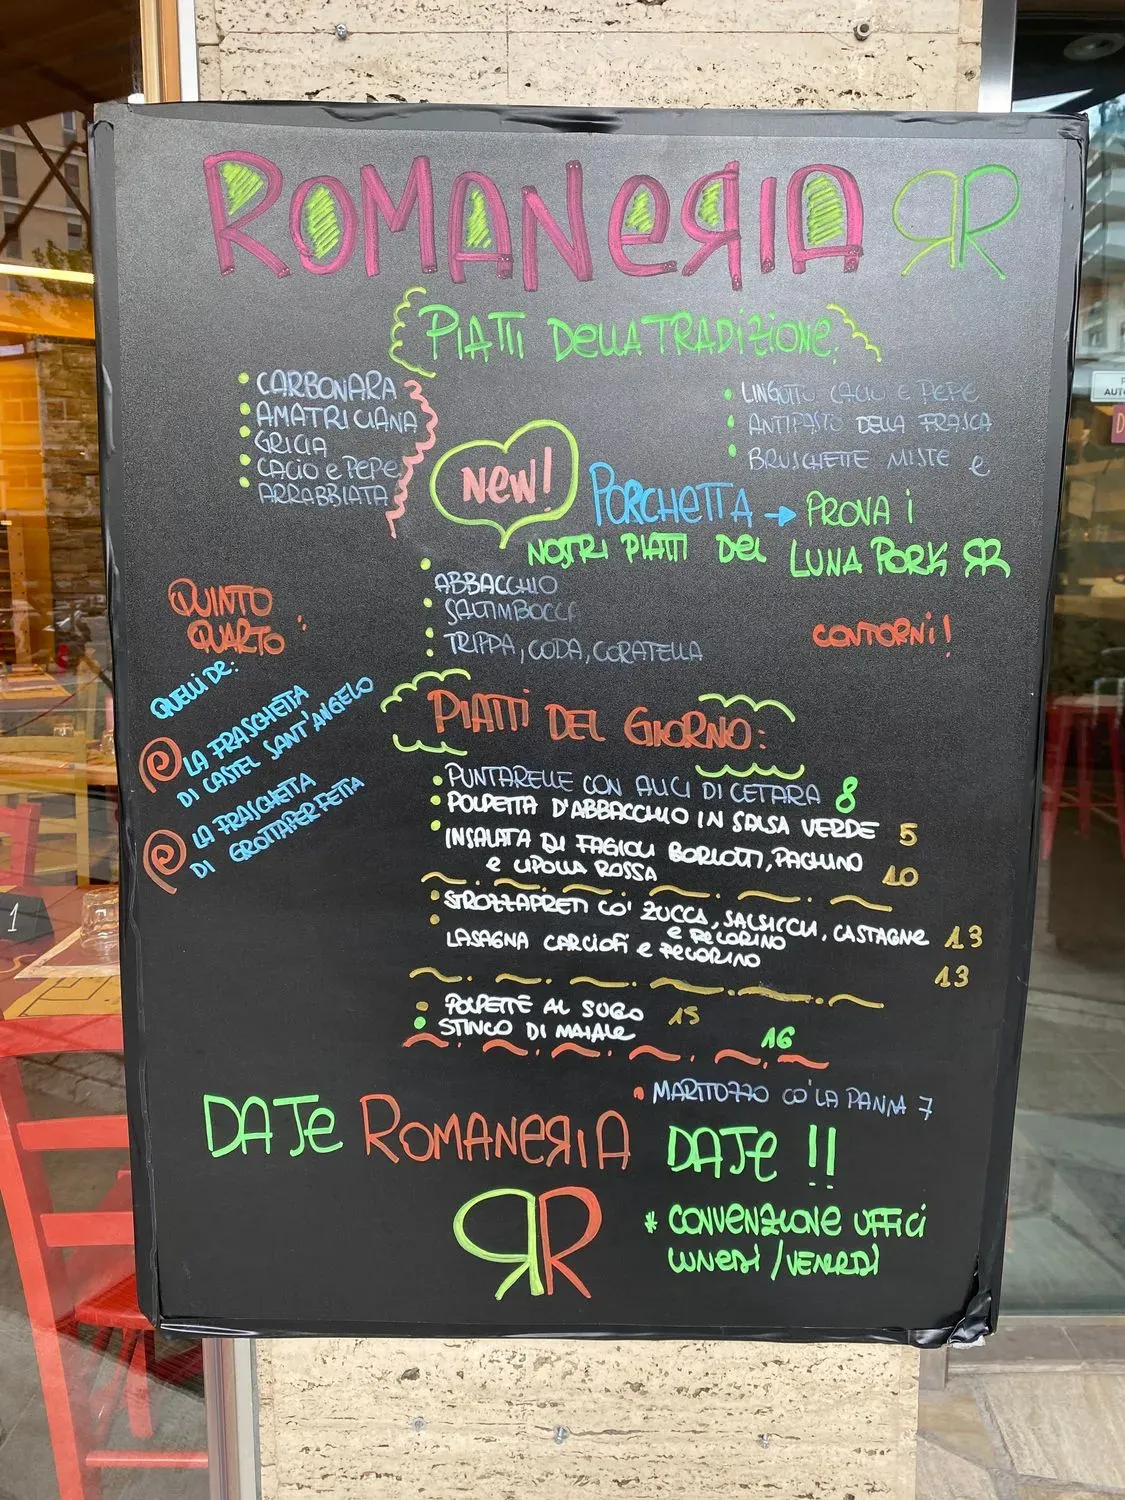 ROMANERIA RR
PIATTI DELLA TRADIZIONE:
CARBONARA
AMATRICIANA
GRICIA
CACIO e PEPE
ARRABBIATA
LINGOTTO CACIO E PEPE
ANTIPASTO DELLA FRASCA
BRUSCHETTE MISTE e
NEW!
PORCHETTA → PROVA i
NOSTRI PIATTI DEL LUNA PORK RR
QUINTO
QUARTO :
ABBACCHIO
SALTIMBOCCA
TRIPPA, CODA, CORATELLA
CONTORNI!
QUELLI DE:
LA FRASCHETTA
DI CASTEL SANT'ANGELO
LA FRASCHETTA
DI GROTTAPERFETTA
PIATTI DEL GIORNO:
PUNTARELLE CON ALICI DI CETARA 8
POLPETTA D'ABBACCHIO IN SALSA VERDE 5
INSALATA DI FAGIOLI BORLOTTI, PACHINO
e CIPOLLA ROSSA 10
STROZZAPRETI CO' ZUCCA, SALSICCIA, CASTAGNE
e PECORINO 13
LASAGNA CARCIOFI e PECORINO 13
POLPETTE AL SUGO 15
STINCO DI MAIALE 16
MARITOZZO CO' LA PANNA 7
DAJE ROMANERIA DAJE !!
RR
* CONVENZIONE UFFICI
LUNEDì / VENERDì
1